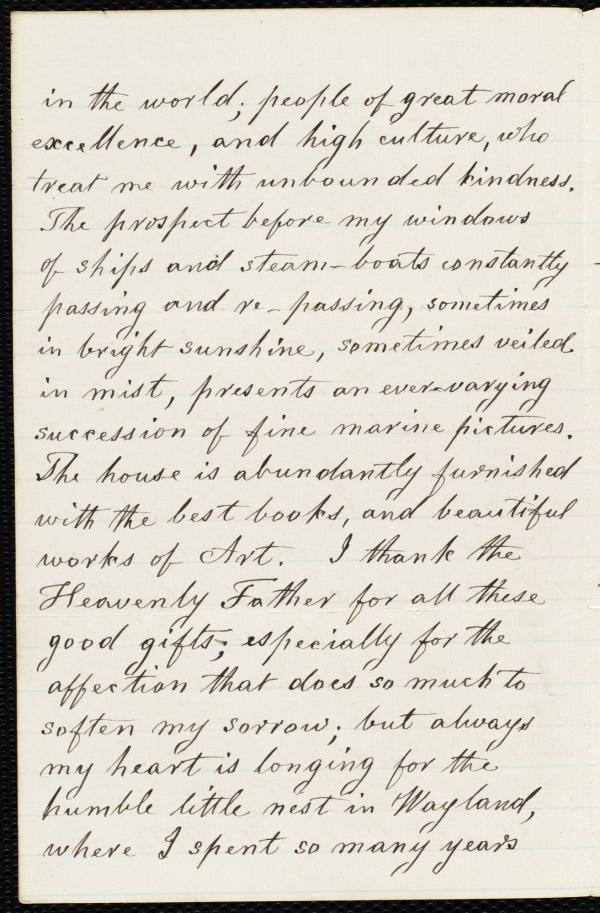 in the world; people of great moral
excellence, and high culture, who
treat me with unbounded kindness.
The prospect before my windows
of ships and steam-boats constantly
passing and re-passing, sometimes
in bright sunshine, sometimes veiled
in mist, presents an ever-varying
succession of fine marine pictures.
The house is abundantly furnished
with the best books, and beautiful
works of Art. I thank the
Heavenly Father for all these
good gifts; especially for the
affection that does so much to
soften my sorrow; but always
my heart is longing for the
humble little nest in Wayland,
where I spent so many years